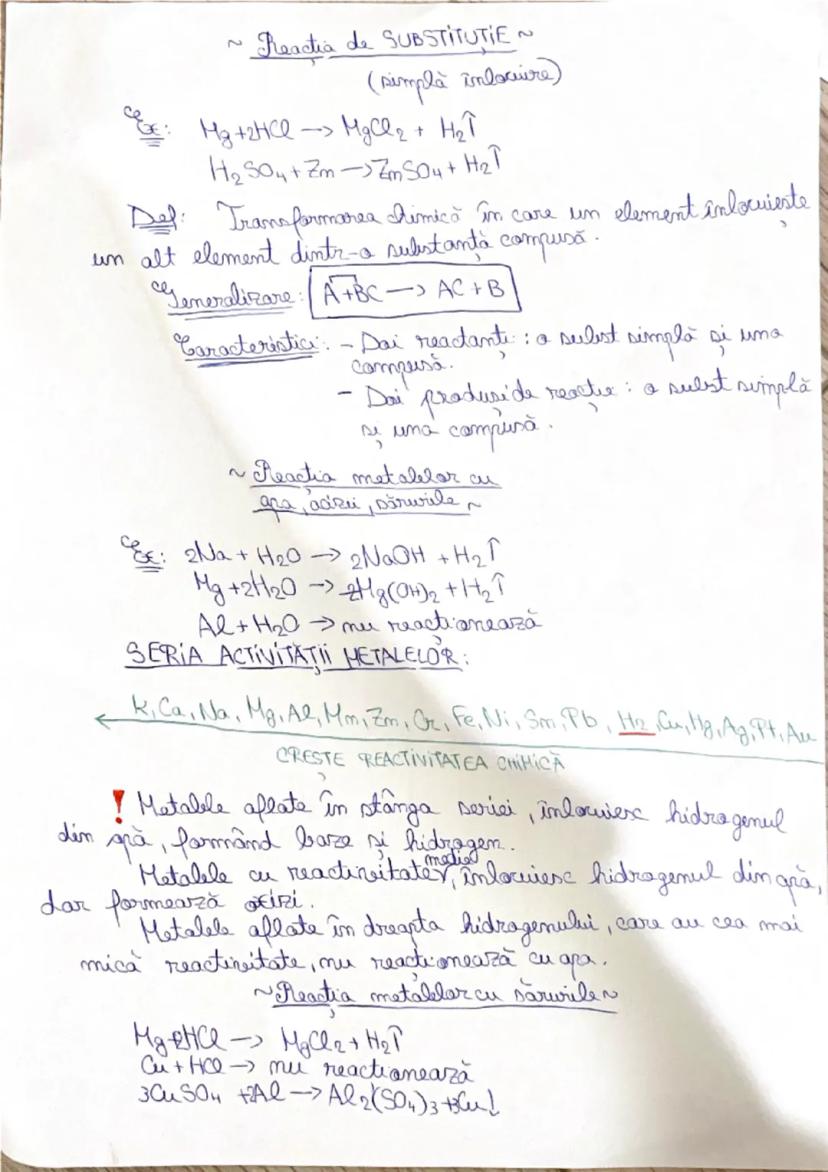 ~ Reactia de SUBSTITUȚIE ~
(simplă înlocuire)
Ex: Mg+2HCl → MgCl2 + H2↑
H2SO4+Zn → ZnSO4+H2↑
Def: Transformarea chimică în care un element înlocuiește
un alt element dintr-o substanță compusă.
Generalizare: A+BC → AC+B
Caracteristici: - Doi reactanți: o subst simplă și una
compusă.
- Doi produși de reacție: o subst simplă
și una compusă.
~ Reacția metalelor cu
apa, acizii, sărurile ~
Ex: 2Na + H2O → 2NaOH + H2↑
Mg+2H2O → Mg(OH)2 + H2↑
Al + H2O → nu reacționează
SERIA ACTIVITĂȚII METALELOR:
K, Ca, Na, Mg, Al, Mn, Zn, Cr, Fe, Ni, Sn, Pb, H2, Cu, Hg, Ag, Pt, Au
CREȘTE REACTIVITATEA CHIMICĂ
! Metalele aflate în stânga seriei, înlocuiesc hidrogenul
din apă, formând baze și hidrogen.
Metalele cu reactivitate medie, înlocuiesc hidrogenul din apă,
dar formează oxizi.
Metalele aflate în dreapta hidrogenului, care au cea mai
mică reactivitate, nu reacționează cu apa.
~ Reacția metalelor cu sărurile ~
Mg+2HCl → MgCl2 + H2↑
Cu + HCl → nu reacționează
3CuSO4 +2Al → Al2(SO4)3 +3Cu↓